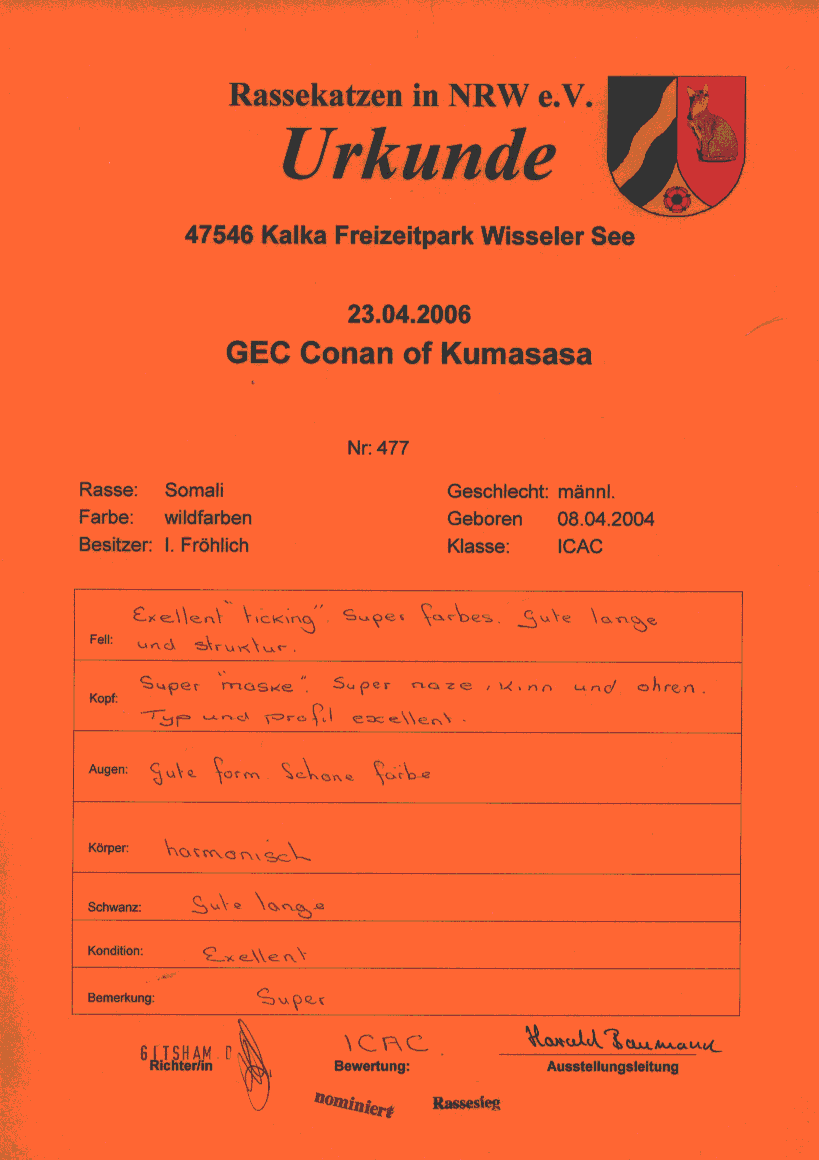 Rassekatzen in NRW e.V.
Urkunde
47546 Kalka Freizeitpark Wisseler See
23.04.2006
GEC Conan of Kumasasa
Nr: 477
Rasse: Somali Geschlecht: männl.
Farbe: wildfarben Geboren 08.04.2004
Besitzer: I. Fröhlich Klasse: ICAC
Fell: Exellent "ticking". Super farbes. Gute lange
und struktur.
Kopf: Super "maske". Super naze, Kinn und ohren.
Typ und profil excellent.
Augen: Gute form. Schone farbe
Körper: harmonisch
Schwanz: Gute lange
Kondition: Exellent
Bemerkung: Super
GITSHAM D ICAC Harald Baumann
Richter/in Bewertung: Ausstellungsleitung
nominiert Rassesieg